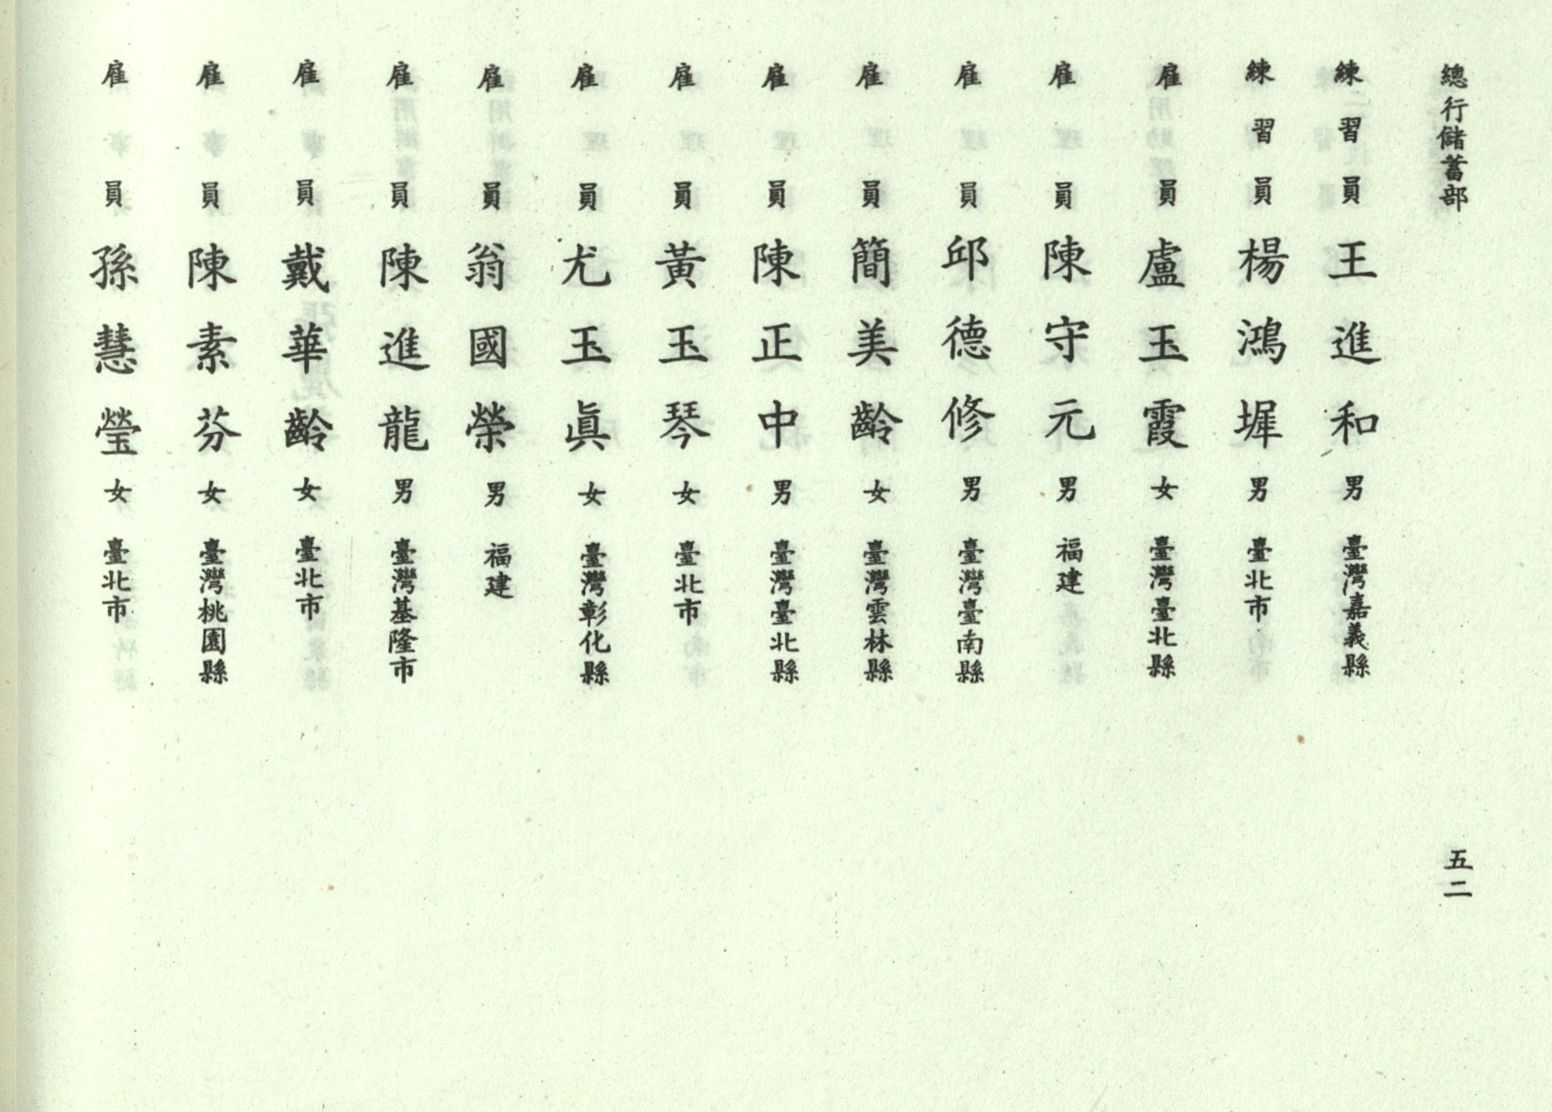 總行儲蓄部
五二
練習員 王進和 男 臺灣嘉義縣
練習員 楊鴻墀 男 臺北市
雇員 盧玉霞 女 臺灣臺北縣
雇員 陳守元 男 福建
雇員 邱德修 男 臺灣臺南縣
雇員 簡美齡 女 臺灣雲林縣
雇員 陳正中 男 臺灣臺北縣
雇員 黃玉琴 女 臺北市
雇員 尤玉眞 女 臺灣彰化縣
雇員 翁國榮 男 福建
雇員 陳進龍 男 臺灣基隆市
雇員 戴華齡 女 臺北市
雇員 陳素芬 女 臺灣桃園縣
雇員 孫慧瑩 女 臺北市